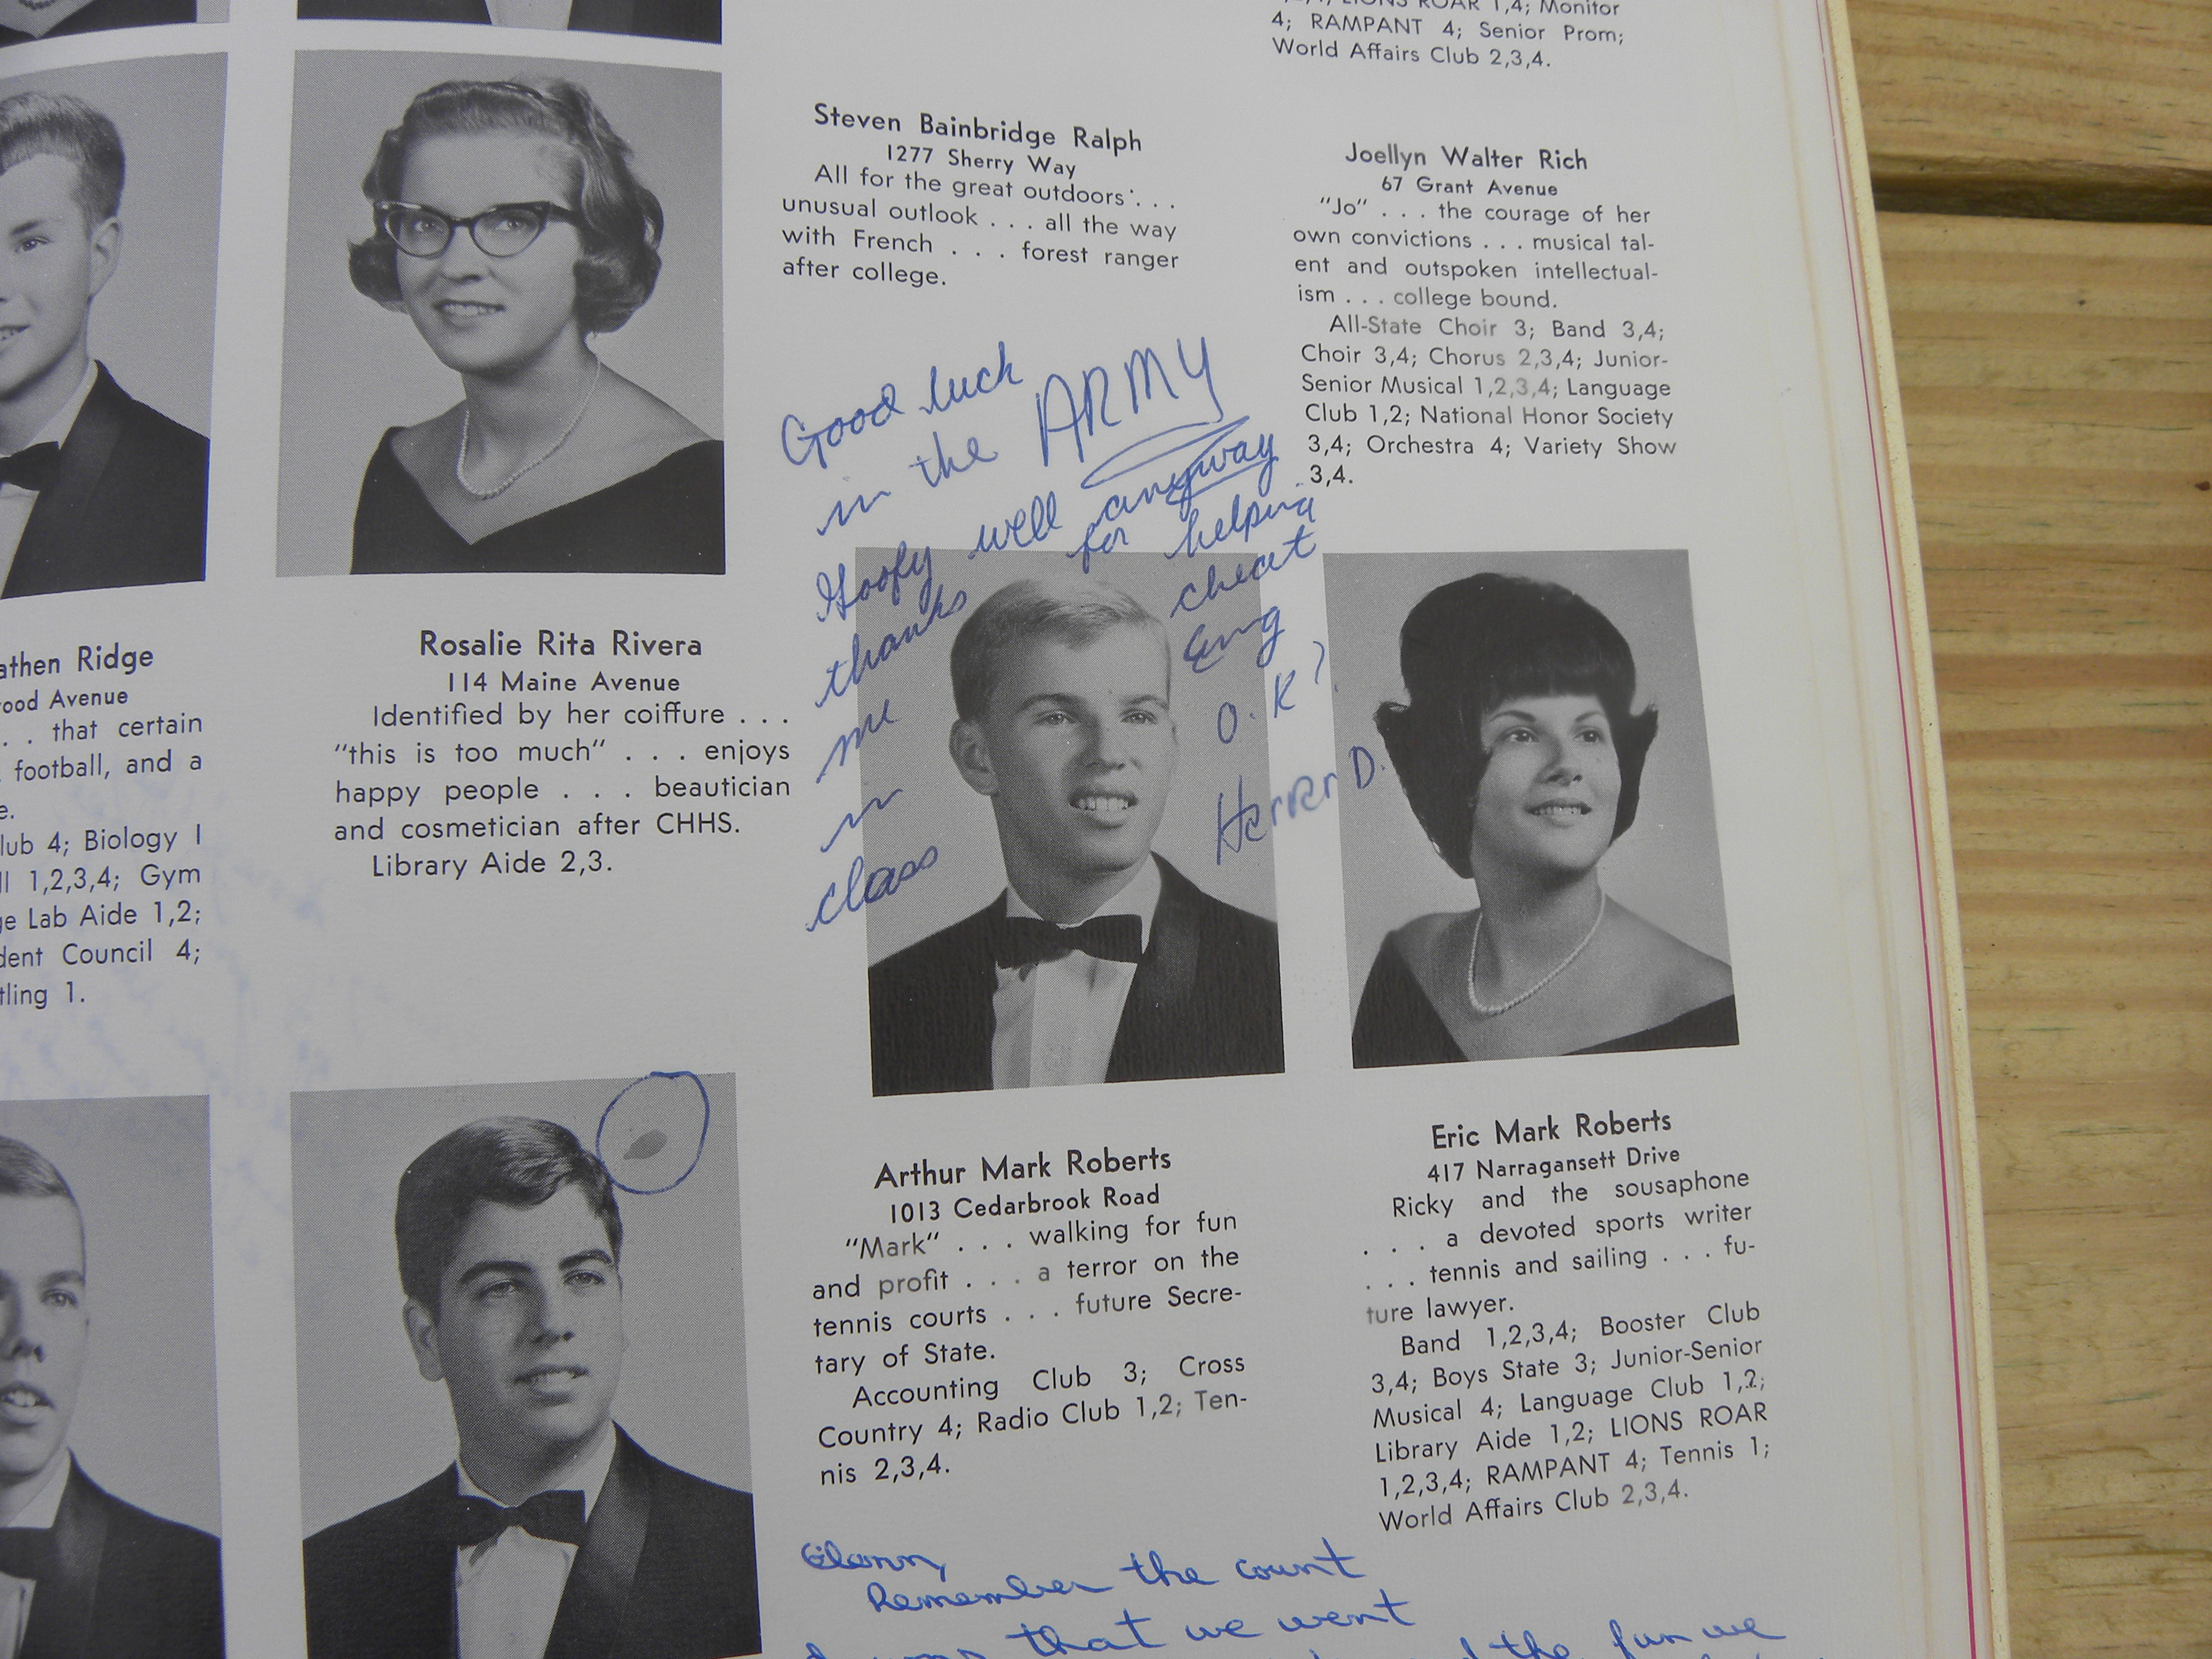 LIONS ROAR 1,4; Monitor
4; RAMPANT 4; Senior Prom;
World Affairs Club 2,3,4.
Steven Bainbridge Ralph
1277 Sherry Way
All for the great outdoors . . .
unusual outlook . . . all the way
with French . . . forest ranger
after college.
Joellyn Walter Rich
67 Grant Avenue
"Jo" . . . the courage of her
own convictions . . . musical tal-
ent and outspoken intellectual-
ism . . . college bound.
All-State Choir 3; Band 3,4;
Choir 3,4; Chorus 2,3,4; Junior-
Senior Musical 1,2,3,4; Language
Club 1,2; National Honor Society
3,4; Orchestra 4; Variety Show
3,4.
Good luck
in the ARMY
Goofy well anyway
thanks for helping
me cheat
in Eng
class O.K?
athen Ridge
ood Avenue
. . that certain
football, and a
e.
lub 4; Biology I
ll 1,2,3,4; Gym
ge Lab Aide 1,2;
dent Council 4;
tling 1.
Rosalie Rita Rivera
114 Maine Avenue
Identified by her coiffure . . .
"this is too much" . . . enjoys
happy people . . . beautician
and cosmetician after CHHS.
Library Aide 2,3.
Arthur Mark Roberts
1013 Cedarbrook Road
"Mark" . . . walking for fun
and profit . . . a terror on the
tennis courts . . . future Secre-
tary of State.
Accounting Club 3; Cross
Country 4; Radio Club 1,2; Ten-
nis 2,3,4.
Eric Mark Roberts
417 Narragansett Drive
Ricky and the sousaphone
. . . a devoted sports writer
. . . tennis and sailing . . . fu-
ture lawyer.
Band 1,2,3,4; Booster Club
3,4; Boys State 3; Junior-Senior
Musical 4; Language Club 1,2;
Library Aide 1,2; LIONS ROAR
1,2,3,4; RAMPANT 4; Tennis 1;
World Affairs Club 2,3,4.
Remember the count
that we went
the fun we